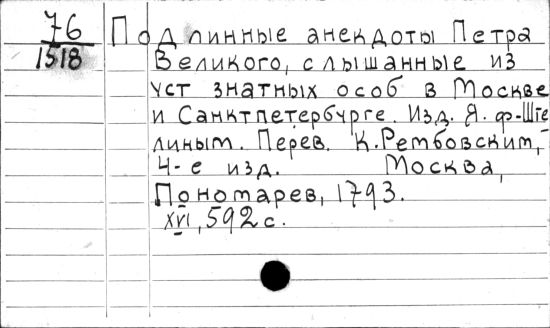 76 Подлинные анекдоты Петра
1518 Великого, слышанные из
уст знатных особ в Москве
и Санктпетербурге. Изд. Я. ф-Ште-
линым. Перев. К. Рембовским,
4-е изд. Москва,
Пономарев, 1793.
XVI, 592 с.